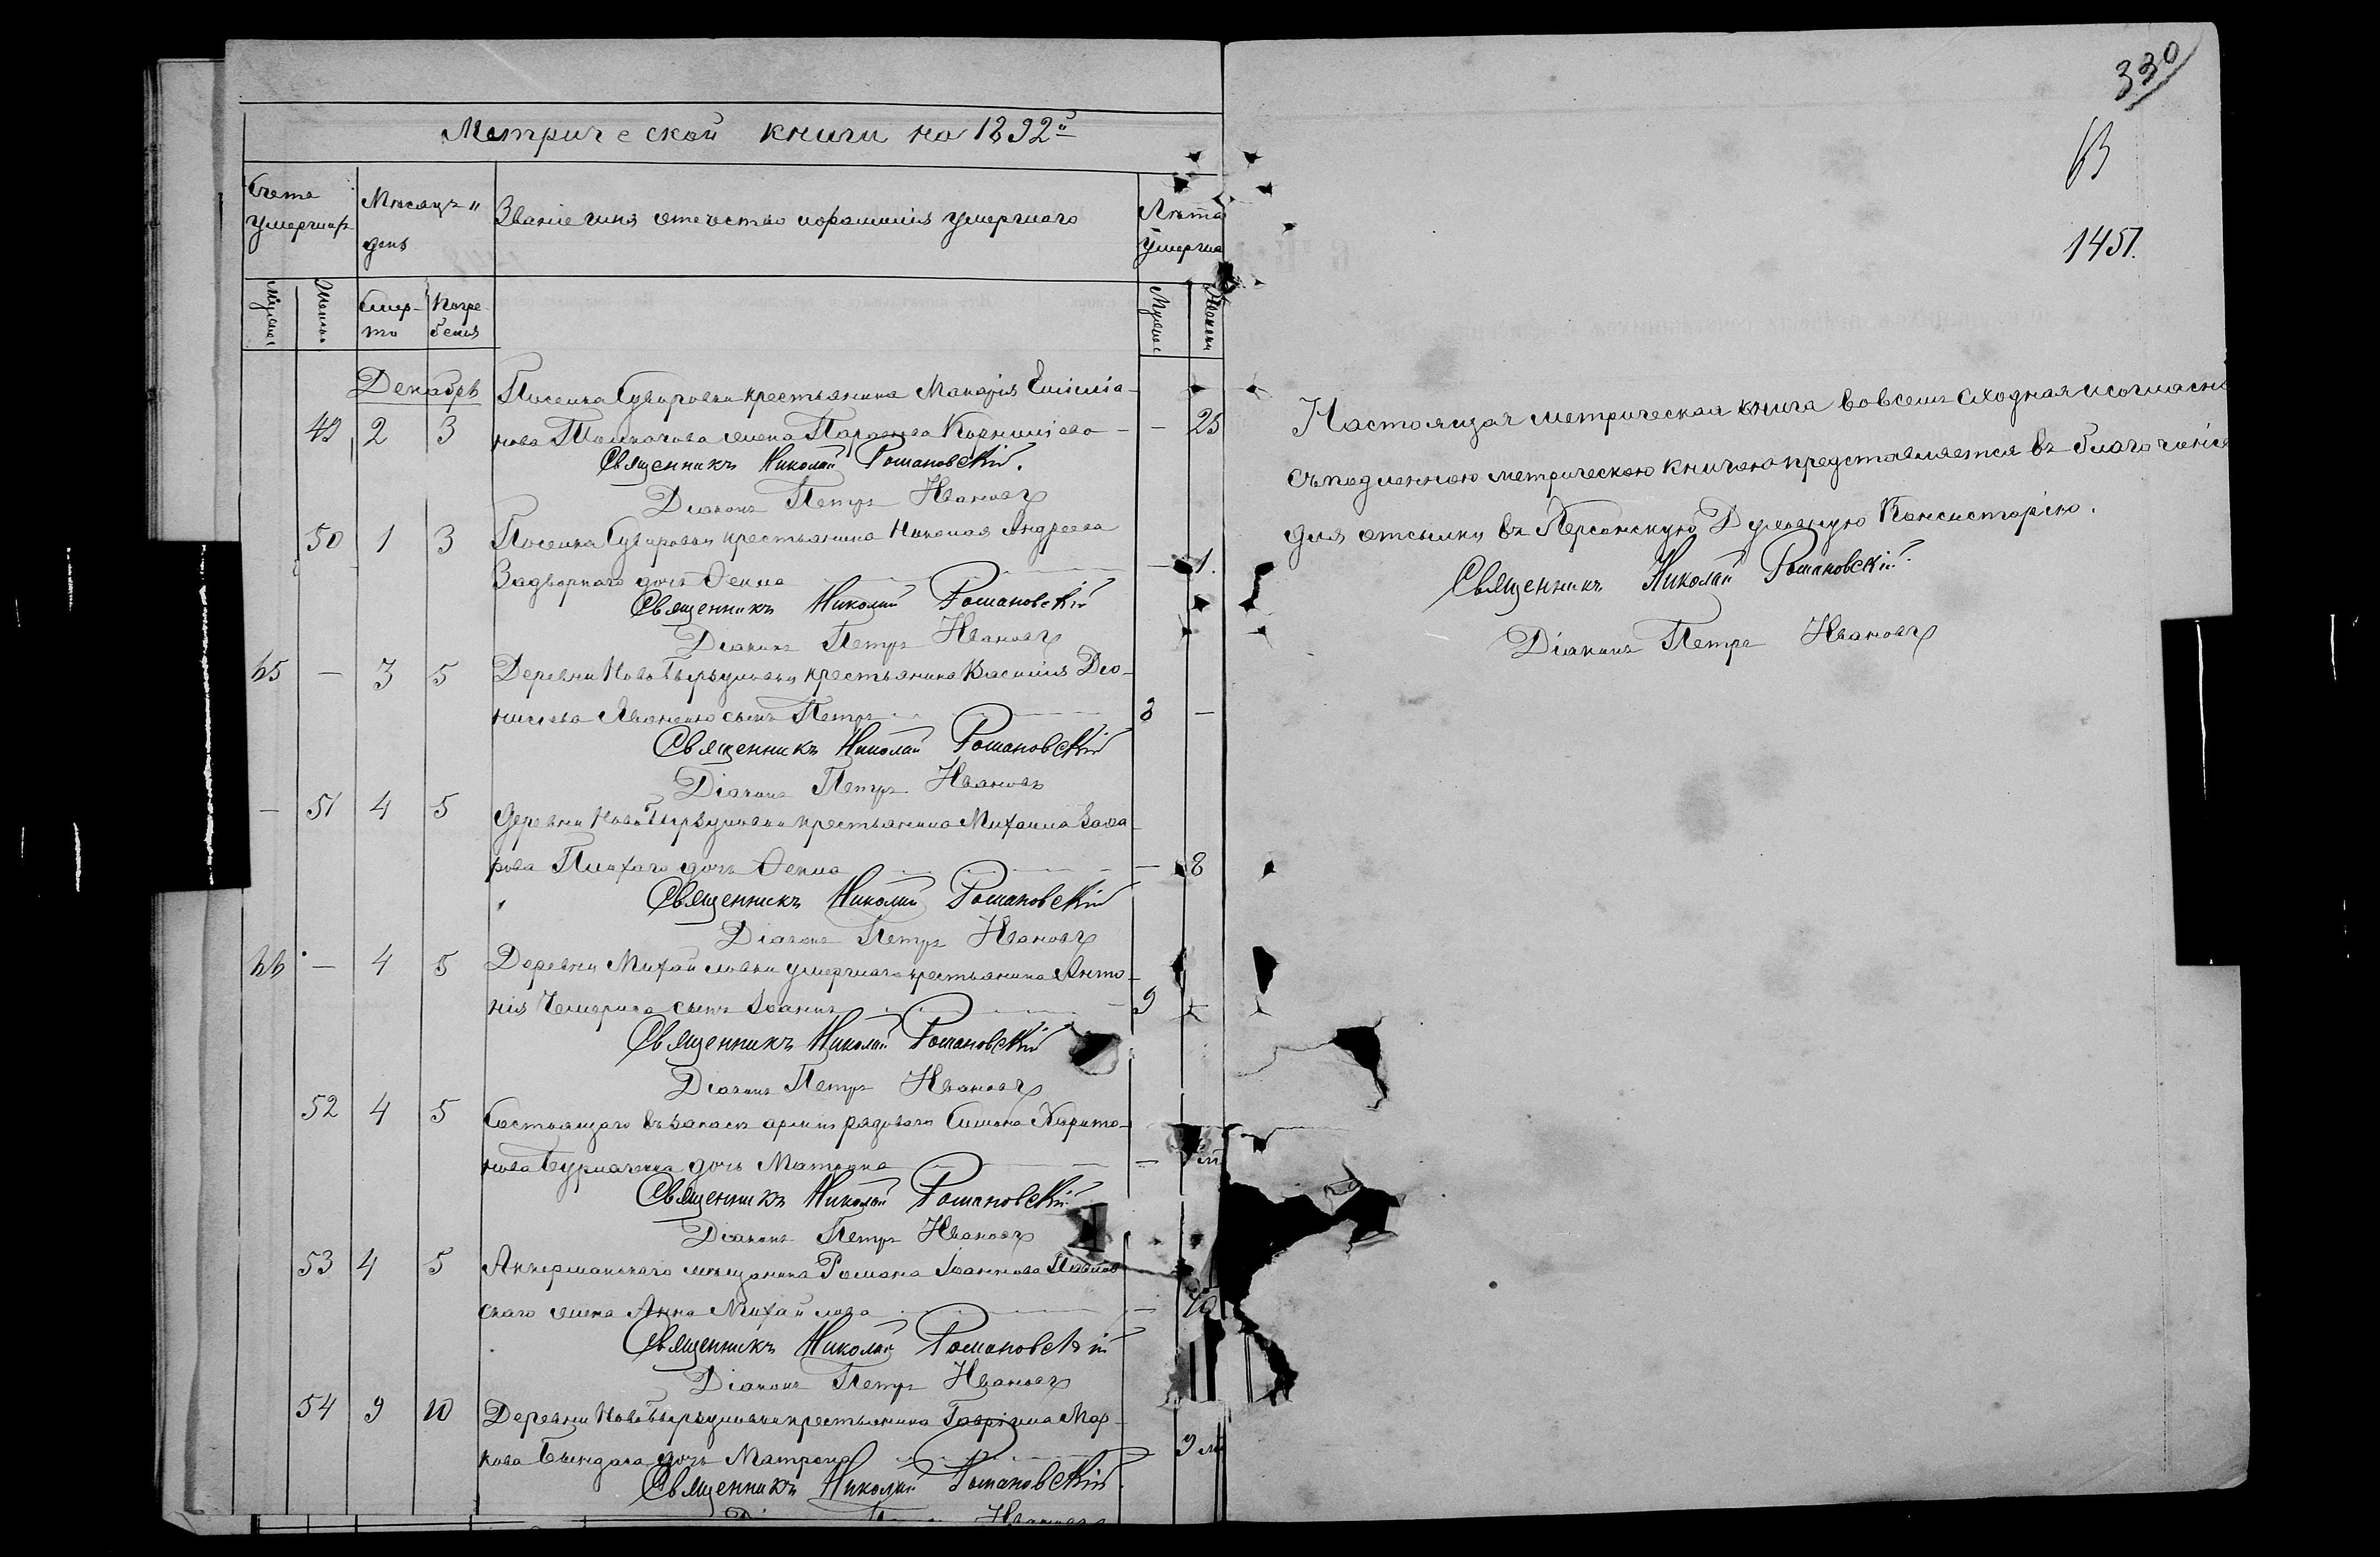 Метрической книги на 1892й
Счетъ умершихъ
Мѣсяцъ и день
Званіе имя отчество и фамилія умершаго
Лѣта умерша
Мужеск
Женск
Смер-
ти
Погре
бенія
Мужеск
Женски
Декабрь
Поселка Суворовки крестьянина Макарія Емилиа-
49 2 3 нова Толмачова жена Параскева Корниліева — — 25
Священникъ Николай Романовскій.
Діаконъ Петръ Ивановъ
50 1 3 Поселка Суворовки крестьянина Николая Андреева
Задворнаго дочь Ѳекла — 1.
Священникъ Николай Романовскій
Діаконъ Петръ Ивановъ
65 — 3 5 Деревни Ново крестьянина Василія Діо-
нисіева сынъ Петръ 8 —
Священникъ Николай Романовскій
Діаконъ Петръ Ивановъ
— 51 4 5 Деревни Ново крестьянина Михаила Заха-
рова Плахаго дочь Ѳекла — 8
Священникъ Николай Романовскій
Діаконъ Петръ Ивановъ
66 — 4 5 Деревни Михайловки умершаго крестьянина Анто-
нія Чемериса сынъ Іоаннъ — 9 —
Священникъ Николай Романовскій
Діаконъ Петръ Ивановъ
52 4 5 Состоящаго въ запасѣ арміи рядоваго Симона Харито-
нова дочь Матрона —
Священникъ Николай Романовскій
Діаконъ Петръ Ивановъ
53 4 5 Аккерманскаго мѣщанина Романа Іоаннова
скаго жена Анна Михайлова —
Священникъ Николай Романовскій
Діаконъ Петръ Ивановъ
54 9 10 Деревни Ново крестьянина Гавріила Мар-
кова дочь Матрона — 9 м
Священникъ Николай Романовскій.
Ивановъ
330
63
1451.
Настоящая метрическая книга во всемъ сходная и согласна
съ подленною метрическою книгою представляется въ благочиніе
для отсылки въ Херсонскую Духовную Консисторію.
Священникъ Николай Романовскій.
Діаконъ Петръ Ивановъ